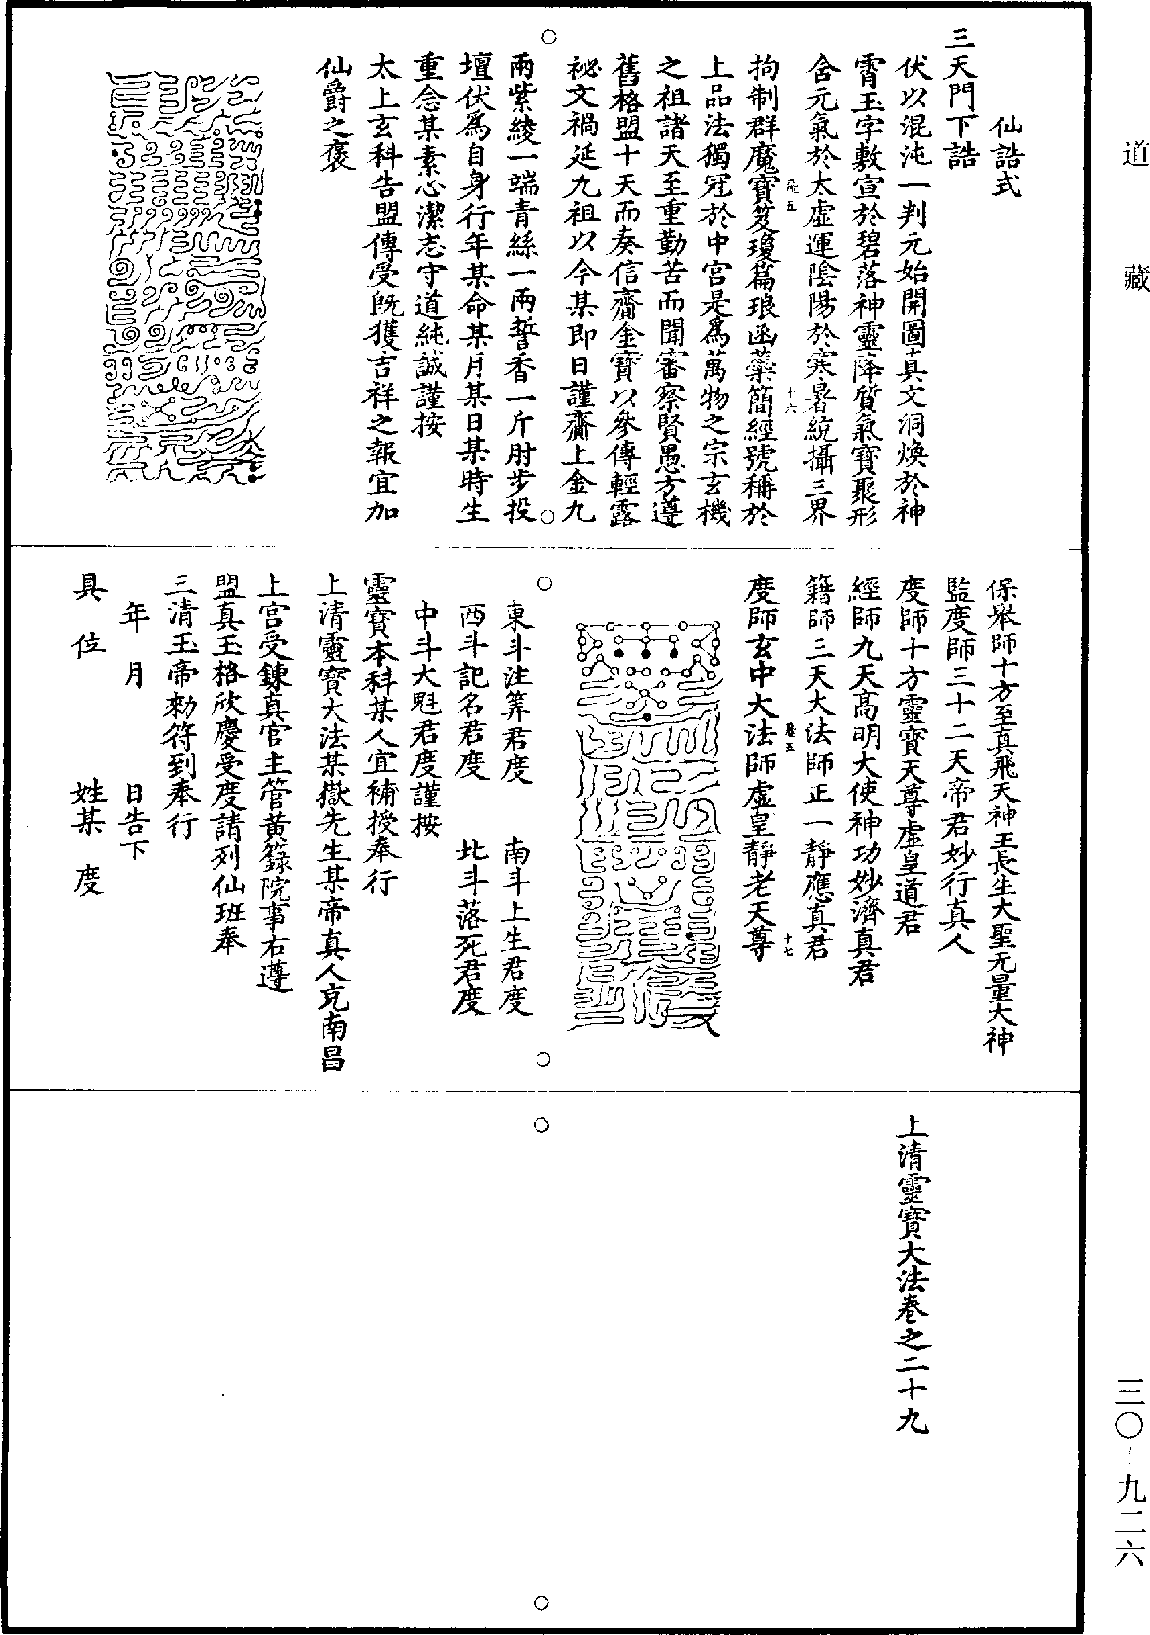 道藏
仙誥式
三天門下誥
伏以混沌一判元始開圖真文洞煥於神
霄玉字敷宣於碧落神靈降質氣寶聚形
含元氣於太虛運陰陽於寒暑統攝三界
拘制群魔寶笈瓊篇琅函蘂簡經號稱於
上品法獨冠於中宮是為萬物之宗玄機
之祖諸天至重勤苦而聞審察賢愚方遵
舊格盟十天而奏信齎金寶以參傳輕露
祕文禍延九祖以今某即日謹齎上金九
兩紫綾一端青絲一兩誓香一斤肘步投
壇伏為自身行年某命某月某日某時生
重念某素心潔志守道純誠謹按
太上玄科告盟傳受既獲吉祥之報宜加
仙爵之褒
保舉師十方至真飛天神王長生大聖无量大神
監度師三十二天帝君妙行真人
度師十方靈寶天尊虛皇道君
經師九天高明大使神功妙濟真君
籍師三天大法師正一靜應真君
度師玄中大法師虛皇靜老天尊
東斗注筭君度　南斗上生君度
西斗記名君度　北斗落死君度
中斗大魁君度謹按
靈寶本科某人宜補授奉行
上清靈寶大法某嶽先生某帝真人充南昌
上宮受鍊真官主管黃籙院事右遵
盟真玉格欣慶受度請列仙班奉
三清玉帝勑符到奉行
年　月　日告下
具　位　姓某　度
上清靈寶大法卷之二十九
三〇-九二六